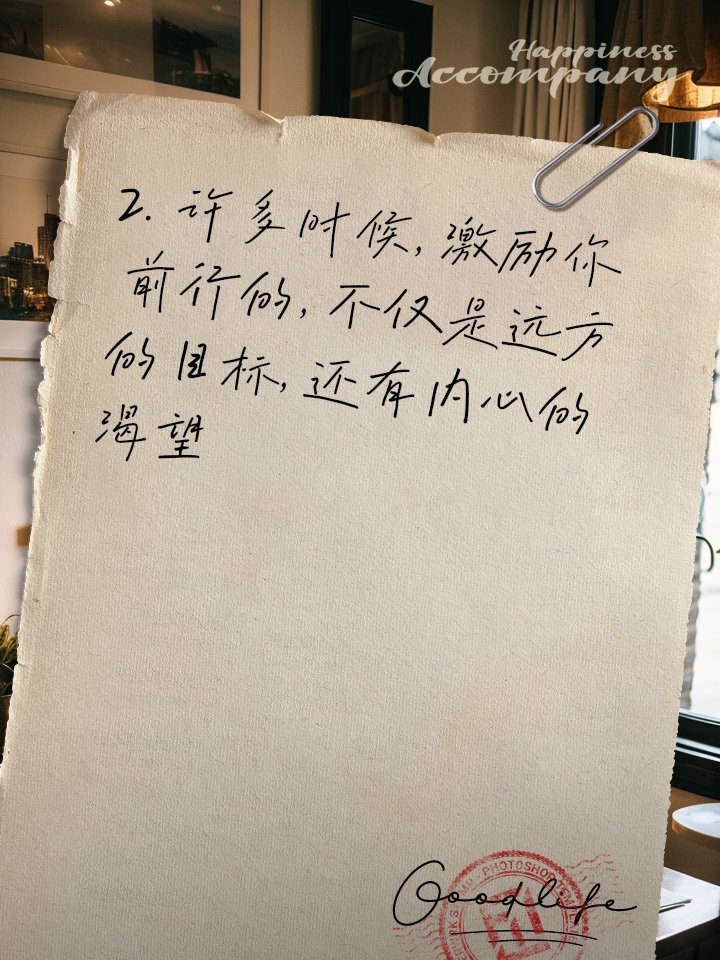 Happiness
Accompany
2. 许多时候, 激励你
前行的, 不仅是远方
的目标, 还有内心的
渴望
Goodlife